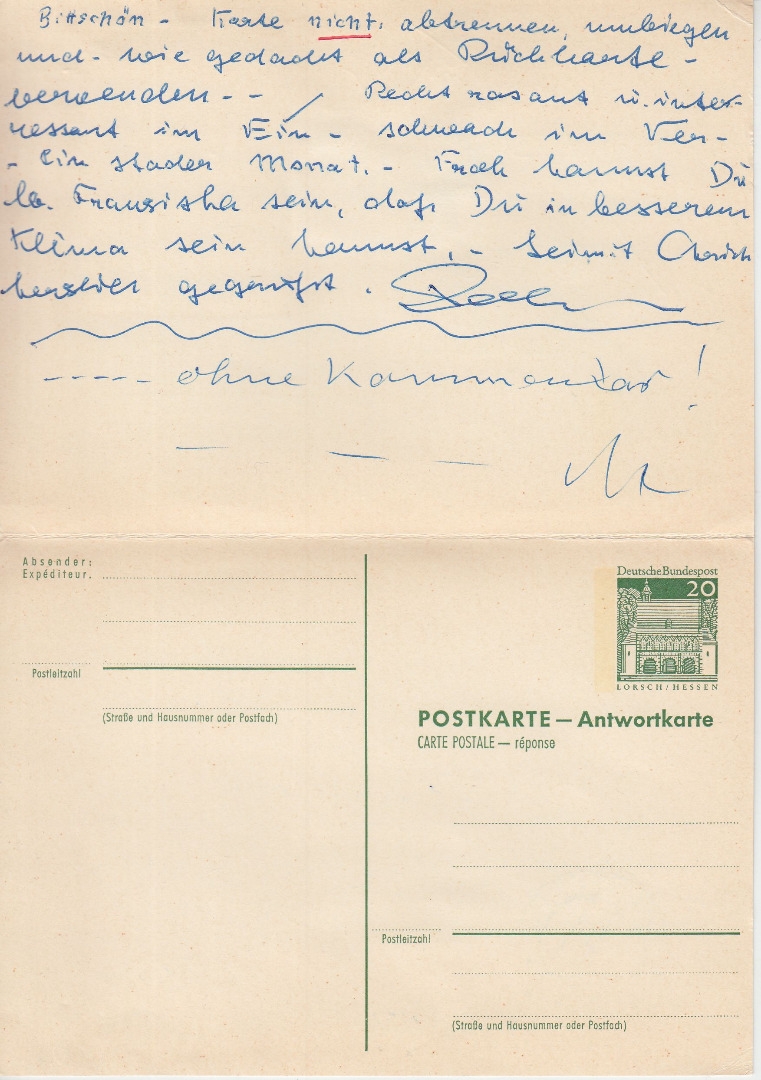 Bittschön - Karte nicht abtrennen, umbiegen
und - wie gedacht als Rückkarte -
verwenden - - / Recht rasant u. inter-
ressant im Ein - schwach im Ver-
- Ein stader Monat. - Froh kannst Du
lb. Franziska sein, daß Du in besserem
Klima sein kannst. - Sei mit
herzlich gegrüßt.
----- ohne Kommentar!
Absender:
Expéditeur.
Postleitzahl
(Straße und Hausnummer oder Postfach)
Deutsche Bundespost
20
LORSCH/HESSEN
POSTKARTE — Antwortkarte
CARTE POSTALE — réponse
Postleitzahl
(Straße und Hausnummer oder Postfach)